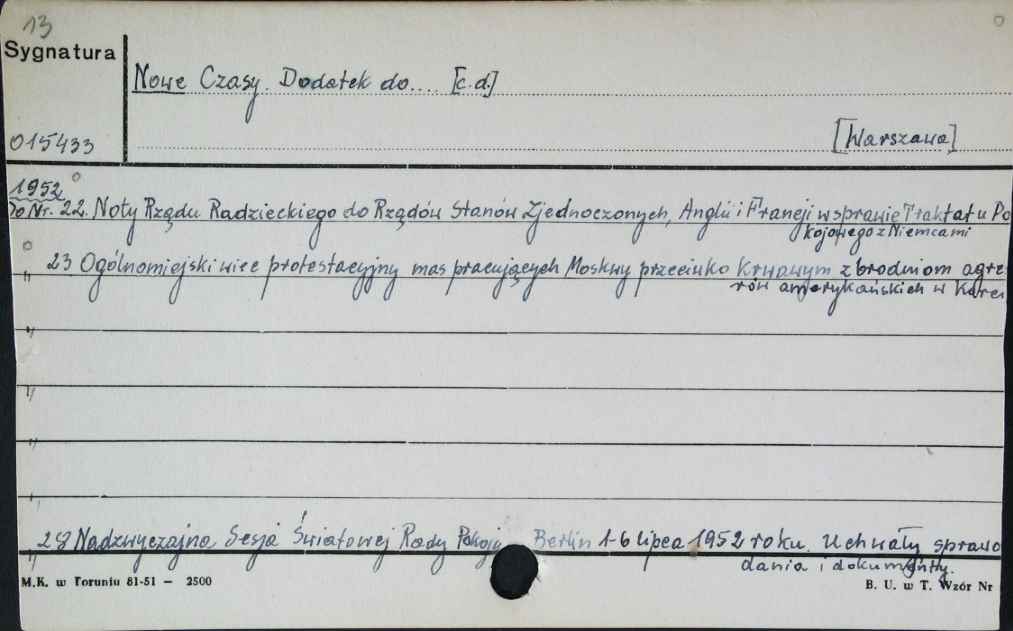 13
Sygnatura
Nowe Czasy. Dodatek do.... [c.d.]
015433
[Warszawa]
1952
Do Nr. 22. Noty Rządu Radzieckiego do Rządów Stanów Zjednoczonych, Anglii i Francji w sprawie Traktatu Po
kojowego z Niemcami
23 Ogólnomiejski wiec protestacyjny mas pracujących Moskwy przeciwko krwawym zbrodniom agre
rów amerykańskich w Korei
28 Nadzwyczajna Sesja Światowej Rady Pokoju Berlin 1-6 lipca 1952 roku. Uchwały sprawo
dania i dokumenty.
M.K. w Toruniu 81-51 — 2500
B. U. w T. Wzór Nr